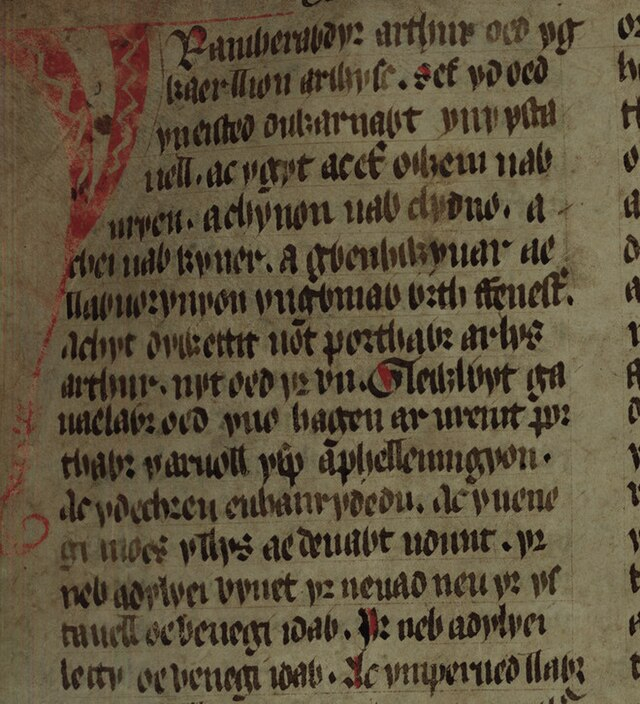 Yr amheraỽdyr arthur oed yg
kaer llion arỽysc. Sef yd oed
yn eisted diwarnaỽt yn y ysta
uell. ac ygyt ac ef owein uab
uryen. achynon uab clydno. a
chei uab kyner. a gỽenhỽyuar ae
llaỽuorynyon yn gỽniaỽ ỽrth ffenest͛.
Achyt dyỽettit uot porthaỽr ar lys
arthur. nyt oed yr vn. Gleỽlỽyt ga
uaelaỽr oed yno hagen ar ureint por
thaỽr y aruoll ysp aphellennigyon.
Ac y dechreu eu hanrydedu. Ac y uene
gi moes yllys ae deuaỽt udunt. yr
neb adylyei vynet yr neuad neu yr ys
tauell oe venegi idaỽ. Yr neb adylyei
letty oe venegi idaỽ. Ac ymperued llaỽr